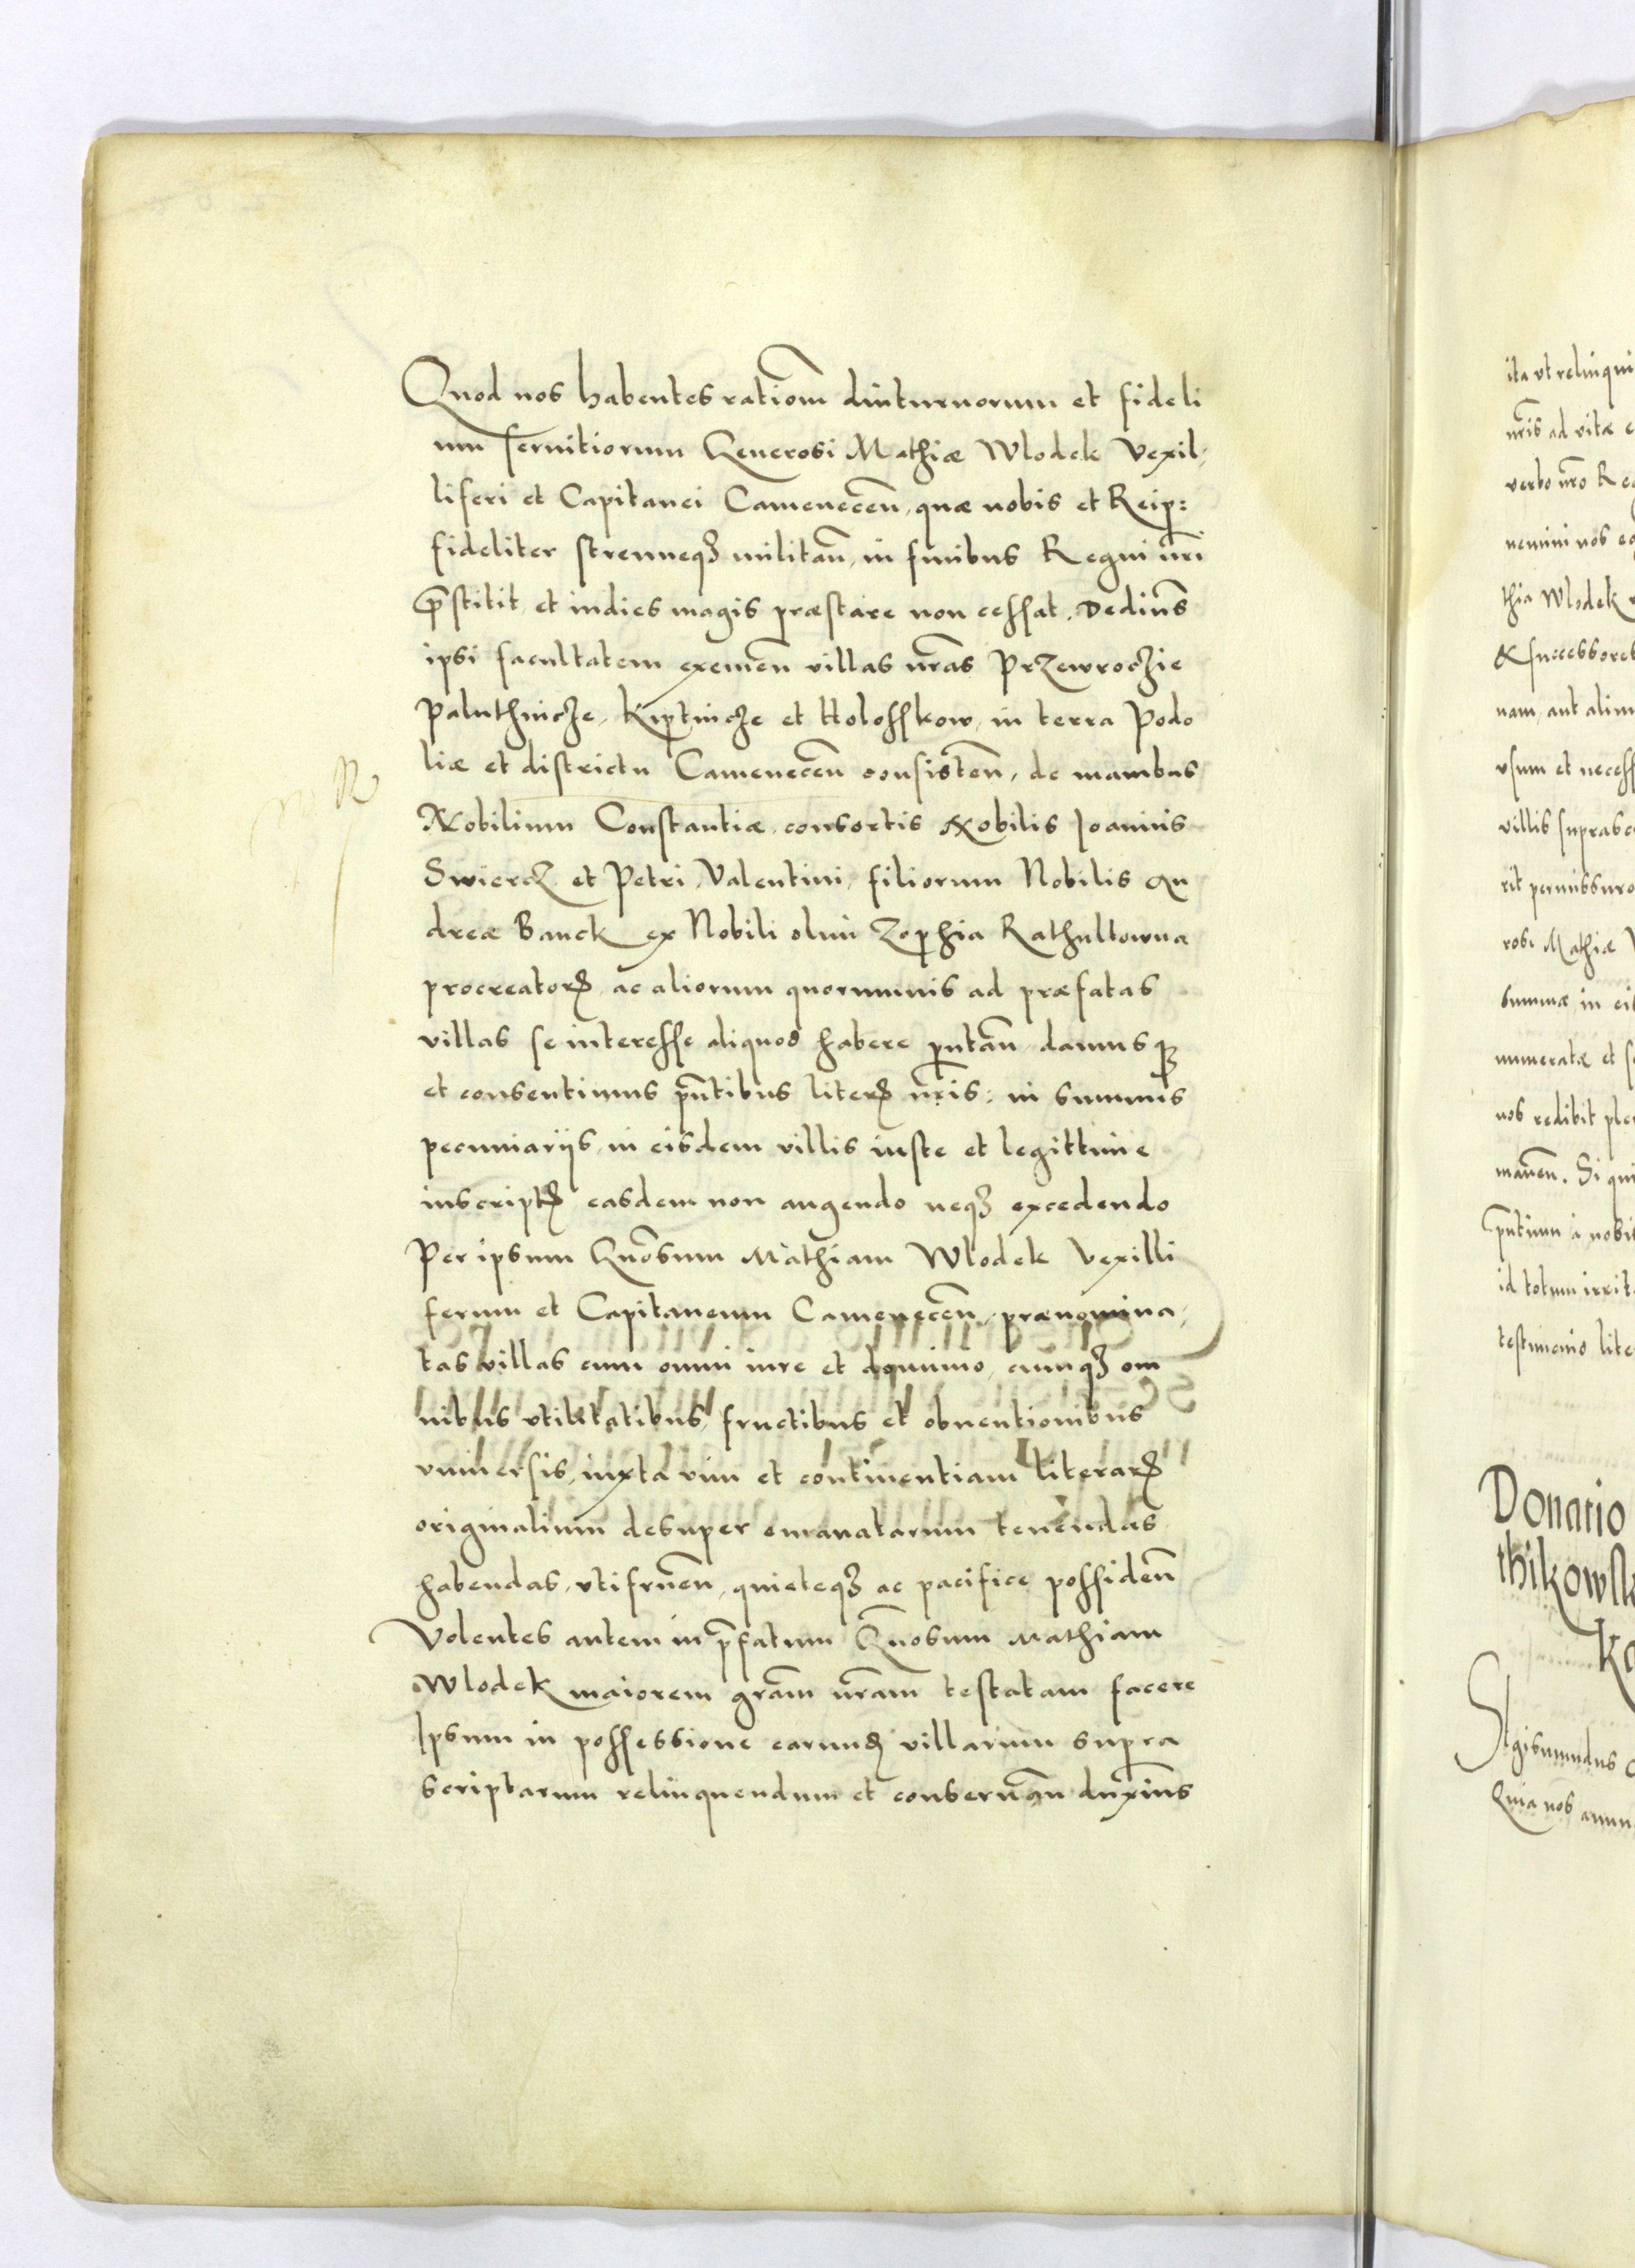 Quod nos habentes rationẽ diuturnorum et fideli
um seruitiorum Generosi Mathiæ Wlodek Vexil,
liferi et Capitanei Camenecen̄, quæ nobis et Reip:
fideliter strenueqȝ militan̄, in finibus Regni nr̄i
p̄stitit, et indies magis præstare non cessat. Dedim̄s
ipsi facultatem exemen̄ villas nr̄as Przewroczie
Paluthnicze, Kiptincze et Holosskow, in terra Podo
liæ et districtu Camenecen̄ consisten̄, de manibus
Nobilium Constantiæ, consortis Nobilis Joannis
Swiercz et Petri, Valentini, filiorum Nobilis An
dreæ Banck ex Nobili olim Zophia Rathultowna
procreatorꝝ ac aliorum quorumuis ad præfatas
villas se interesse aliquod habere putan̄, damusqȝ
et consentimus pn̄tibus literꝭ nr̄is: in summis
pecuniarijs, in eisdem villis iuste et legittime
inscriptꝭ easdem non augendo neqȝ excedendo
Per ipsum Gn̄osum Mathiam Wlodek Vexilli
ferum et Capitaneum Camenecen̄, prænomina,
tas villas cum omni iure et dominio, cumqȝ om
nibus vtilitatibus, fructibus et obuentionibus
vniuersis, iuxta vim et continentiam literarꝝ
originalium desuper emanatarum tenendas
habendas, vtifruen̄, quieteqȝ ac pacifice possiden̄
Volentes autem in p̄fatum Gn̄osum Mathiam
Wlodek maiorem gr̄am nr̄am testatam facere
Ipsum in possessione earundꝫ villarum supra
scriptarum relinquendum et conseruan̄ duxim̄s
ita vt relinqui
nr̄is ad vitæ
verbo nr̄o Re
nemini nos
thia Wlodek
& successores
nam, aut alim
vsum et necess
villis supras
rit permissuro
rosi Mathiæ
summæ in ei
numeratæ et
nos redibit ple
manen̄. Si qui
pn̄tium a nobis
id totum irrit
testimonio lite
Donatio
thikowsk
Ko
Sigismundus
Quia nos annu